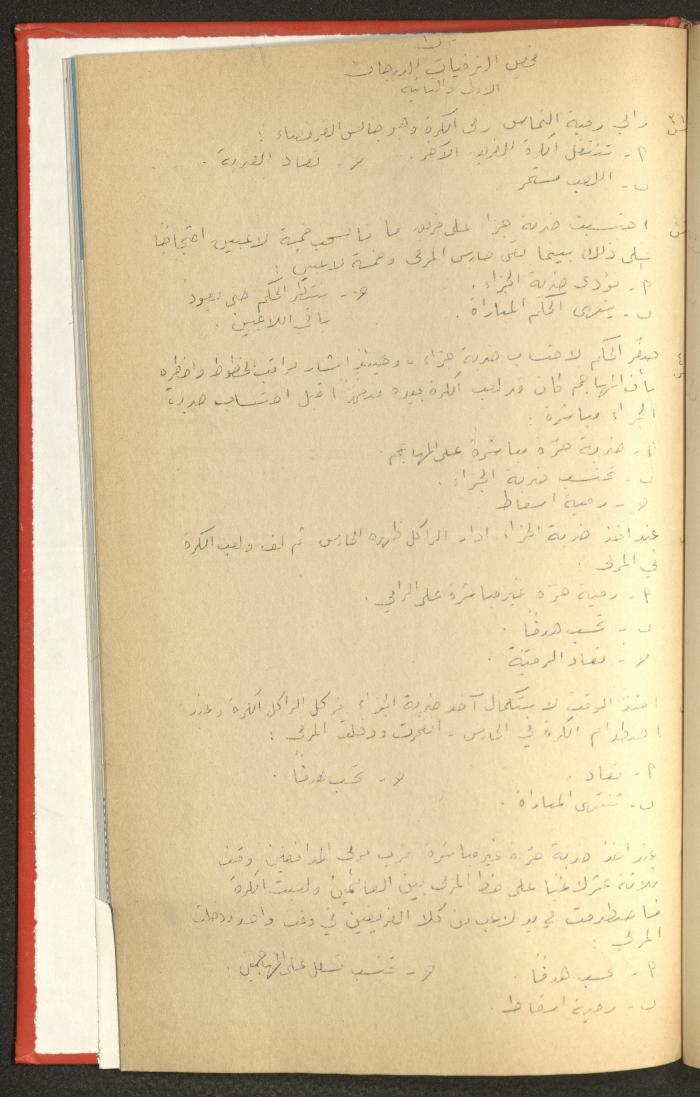 فحص الترفيات الدرجات
الأولى والثانية
رامي رمية التماس رمى الكرة وهو جالس القرفصاء :
٢ - تنتقل الكرة للفريق الآخر . لا - تعاد الضربة .
ب - اللعب مستمر .
احتسبت ضربة جزاء على فريق ما فانسحب خمسة لاعبين احتجاجاً
على ذلك بينما بقي حارس المرمى وخمسة لاعبين :
٢ - تؤدى ضربة الجزاء . لا - ينتظر الحكم حتى يعود
ب - ينهي الحكم المباراة . باقي اللاعبين .
صفّر الحكم لاحتساب ضربة جزاء - وحينئذ أشار مراقب الخطوط وأخطره
بأن المهاجم كان قد لعب الكرة بيده قبل احتساب ضربة
الجزاء مباشرة :
٢ - ضربة حرّة مباشرة على المهاجم .
ب - تحتسب ضربة الجزاء .
لا - رمية اسقاط .
عند اخذ ضربة الجزاء ادار الراكل ظهره للحارس ثم لف ولعب الكرة
في المرمى .
٢ - رمية حرّة غير مباشرة على الرامي .
ب - تحتسب هدفاً .
لا - تعاد الرميّة .
امتد الوقت لاستكمال أخذ ضربة الجزاء فركل الراكل الكرة وعند
اصطدام الكرة في الحارس - انفجرت ودخلت المرمى :
٢ - تعاد . لا - تحسب هدفاً .
ب - تنتهي المباراة .
عند اخذ ضربة حرّة غير مباشرة قرب مرمى المدافعين وقف
ثلاثة عشر لاعباً على خط المرمى بين القائمين ولعبت الكرة
فاصطدمت في يد لاعب من كلا الفريقين في وقت واحد ودخلت
المرمى :
٢ - تحسب هدفاً . لا - تحتسب تسلل على المهاجمين .
ب - رمية اسقاط .